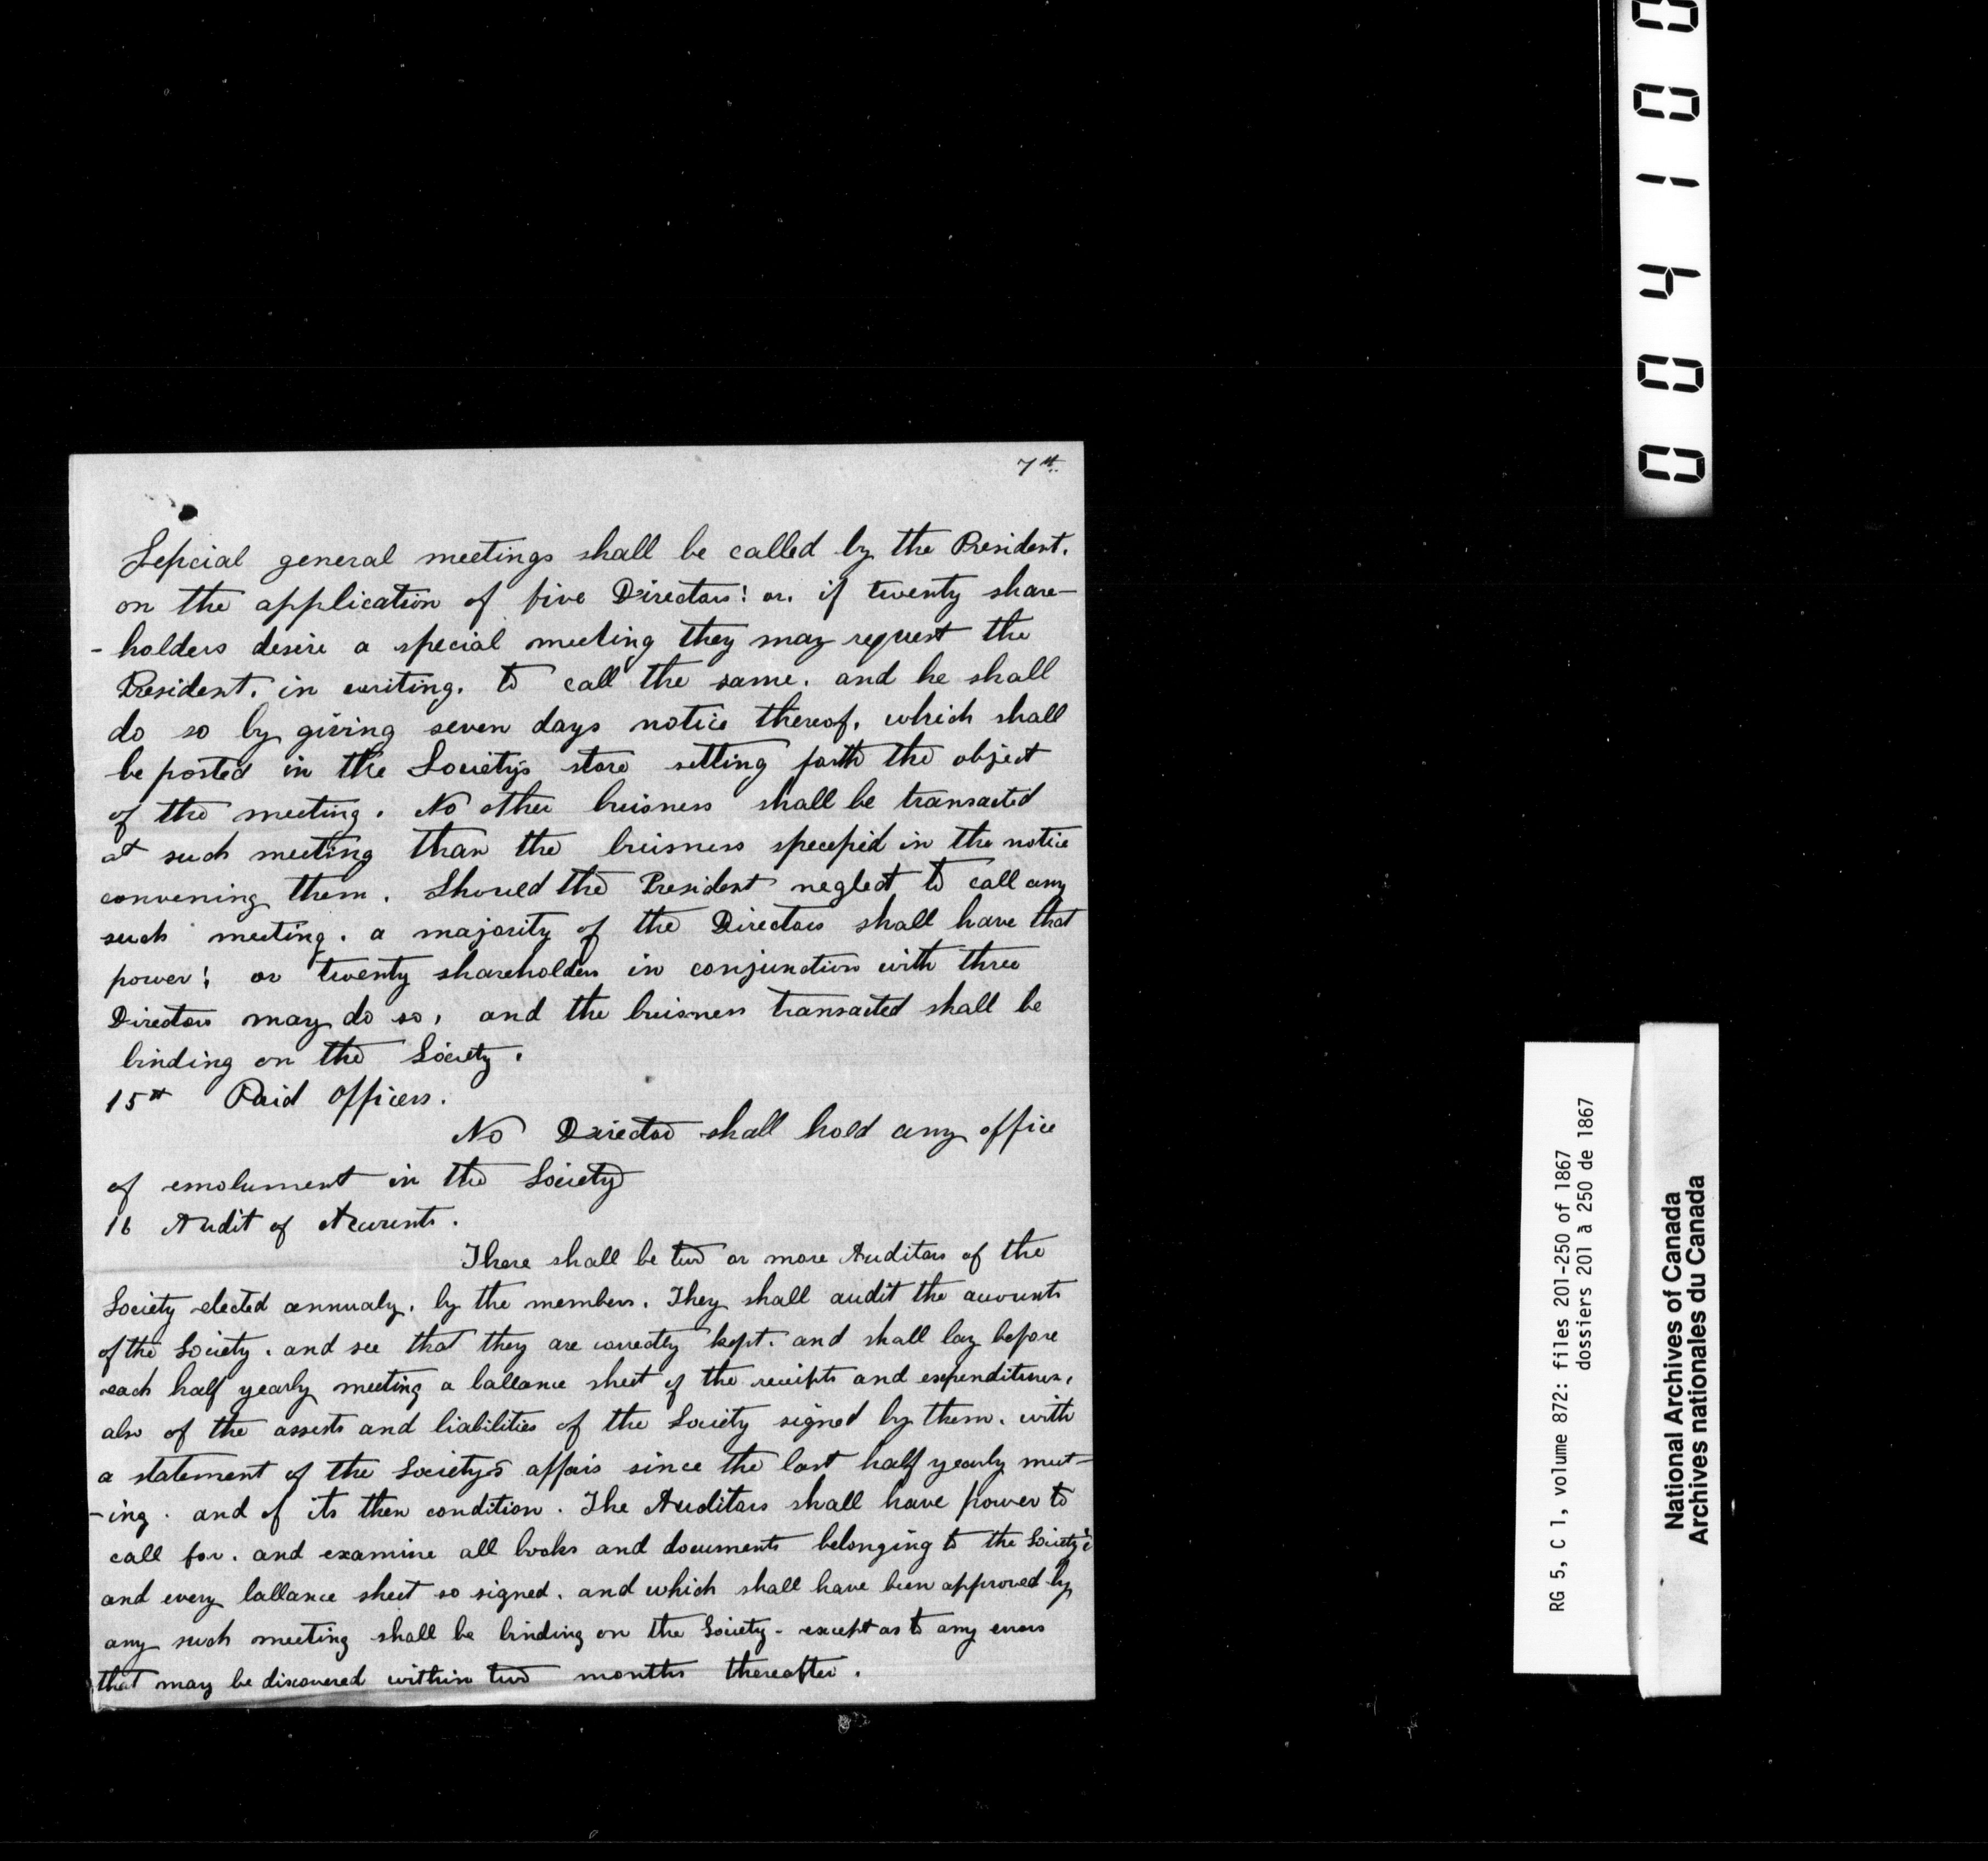 7th
Sepcial general meetings shall be called by the President.
on the application of five Directors: or. if twenty share-
- holders desire a special meeting they may request the
President. in writing. to call the same. and he shall
do so by giving seven days notice thereof. which shall
be posted in the Society's store setting forth the object
of the meeting. No other buisness shall be transacted
at such meeting than the buisness specepid in the notice
convening them. Should the President neglect to call any
such meeting. a majority of the Directors shall have that
power; or twenty shareholders in conjunction with three
Directors may do so, and the buisness transacted shall be
binding on the Society.
15th Paid Officers.
No Director shall hold any office
of emolument in the Society
16 Audit of Accounts.
There shall be two or more Auditors of the
Society elected annualy. by the members. They shall audit the accounts
of the Society. and see that they are correctly kept. and shall lay before
each half yearly meeting a ballance sheet of the receipts and expenditures,
also of the assests and liabilities of the Society signed by them. with
a statement of the Society's affais since the last half yearly meet-
-ing. and of its then condition. The Auditors shall have power to
call for. and examine all books and documents belonging to the Society
and every ballance sheet so signed. and which shall have been approved by
any such meeting shall be binding on the Society - except as to any errors
that may be discovered within two months thereafter.
004100
RG 5, C 1, volume 872: files 201-250 of 1867
dossiers 201 à 250 de 1867
National Archives of Canada
Archives nationales du Canada